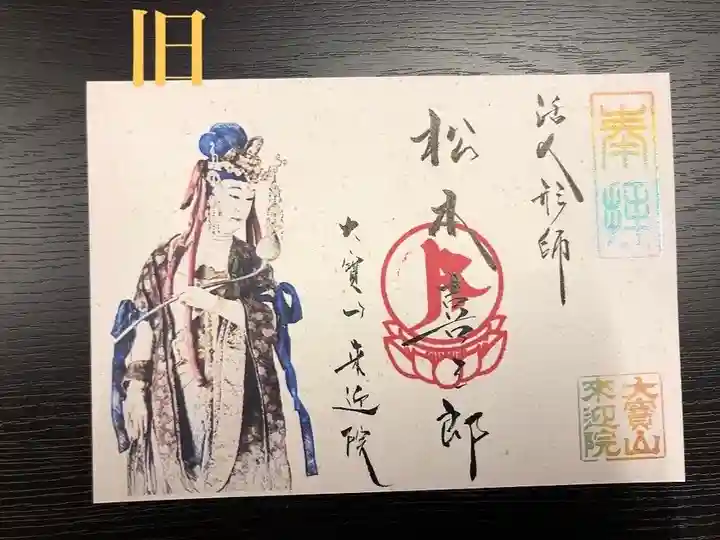 旧
奉拝
活人形師
松本喜三郎
大寳山来迎院
大寳山
來迎院